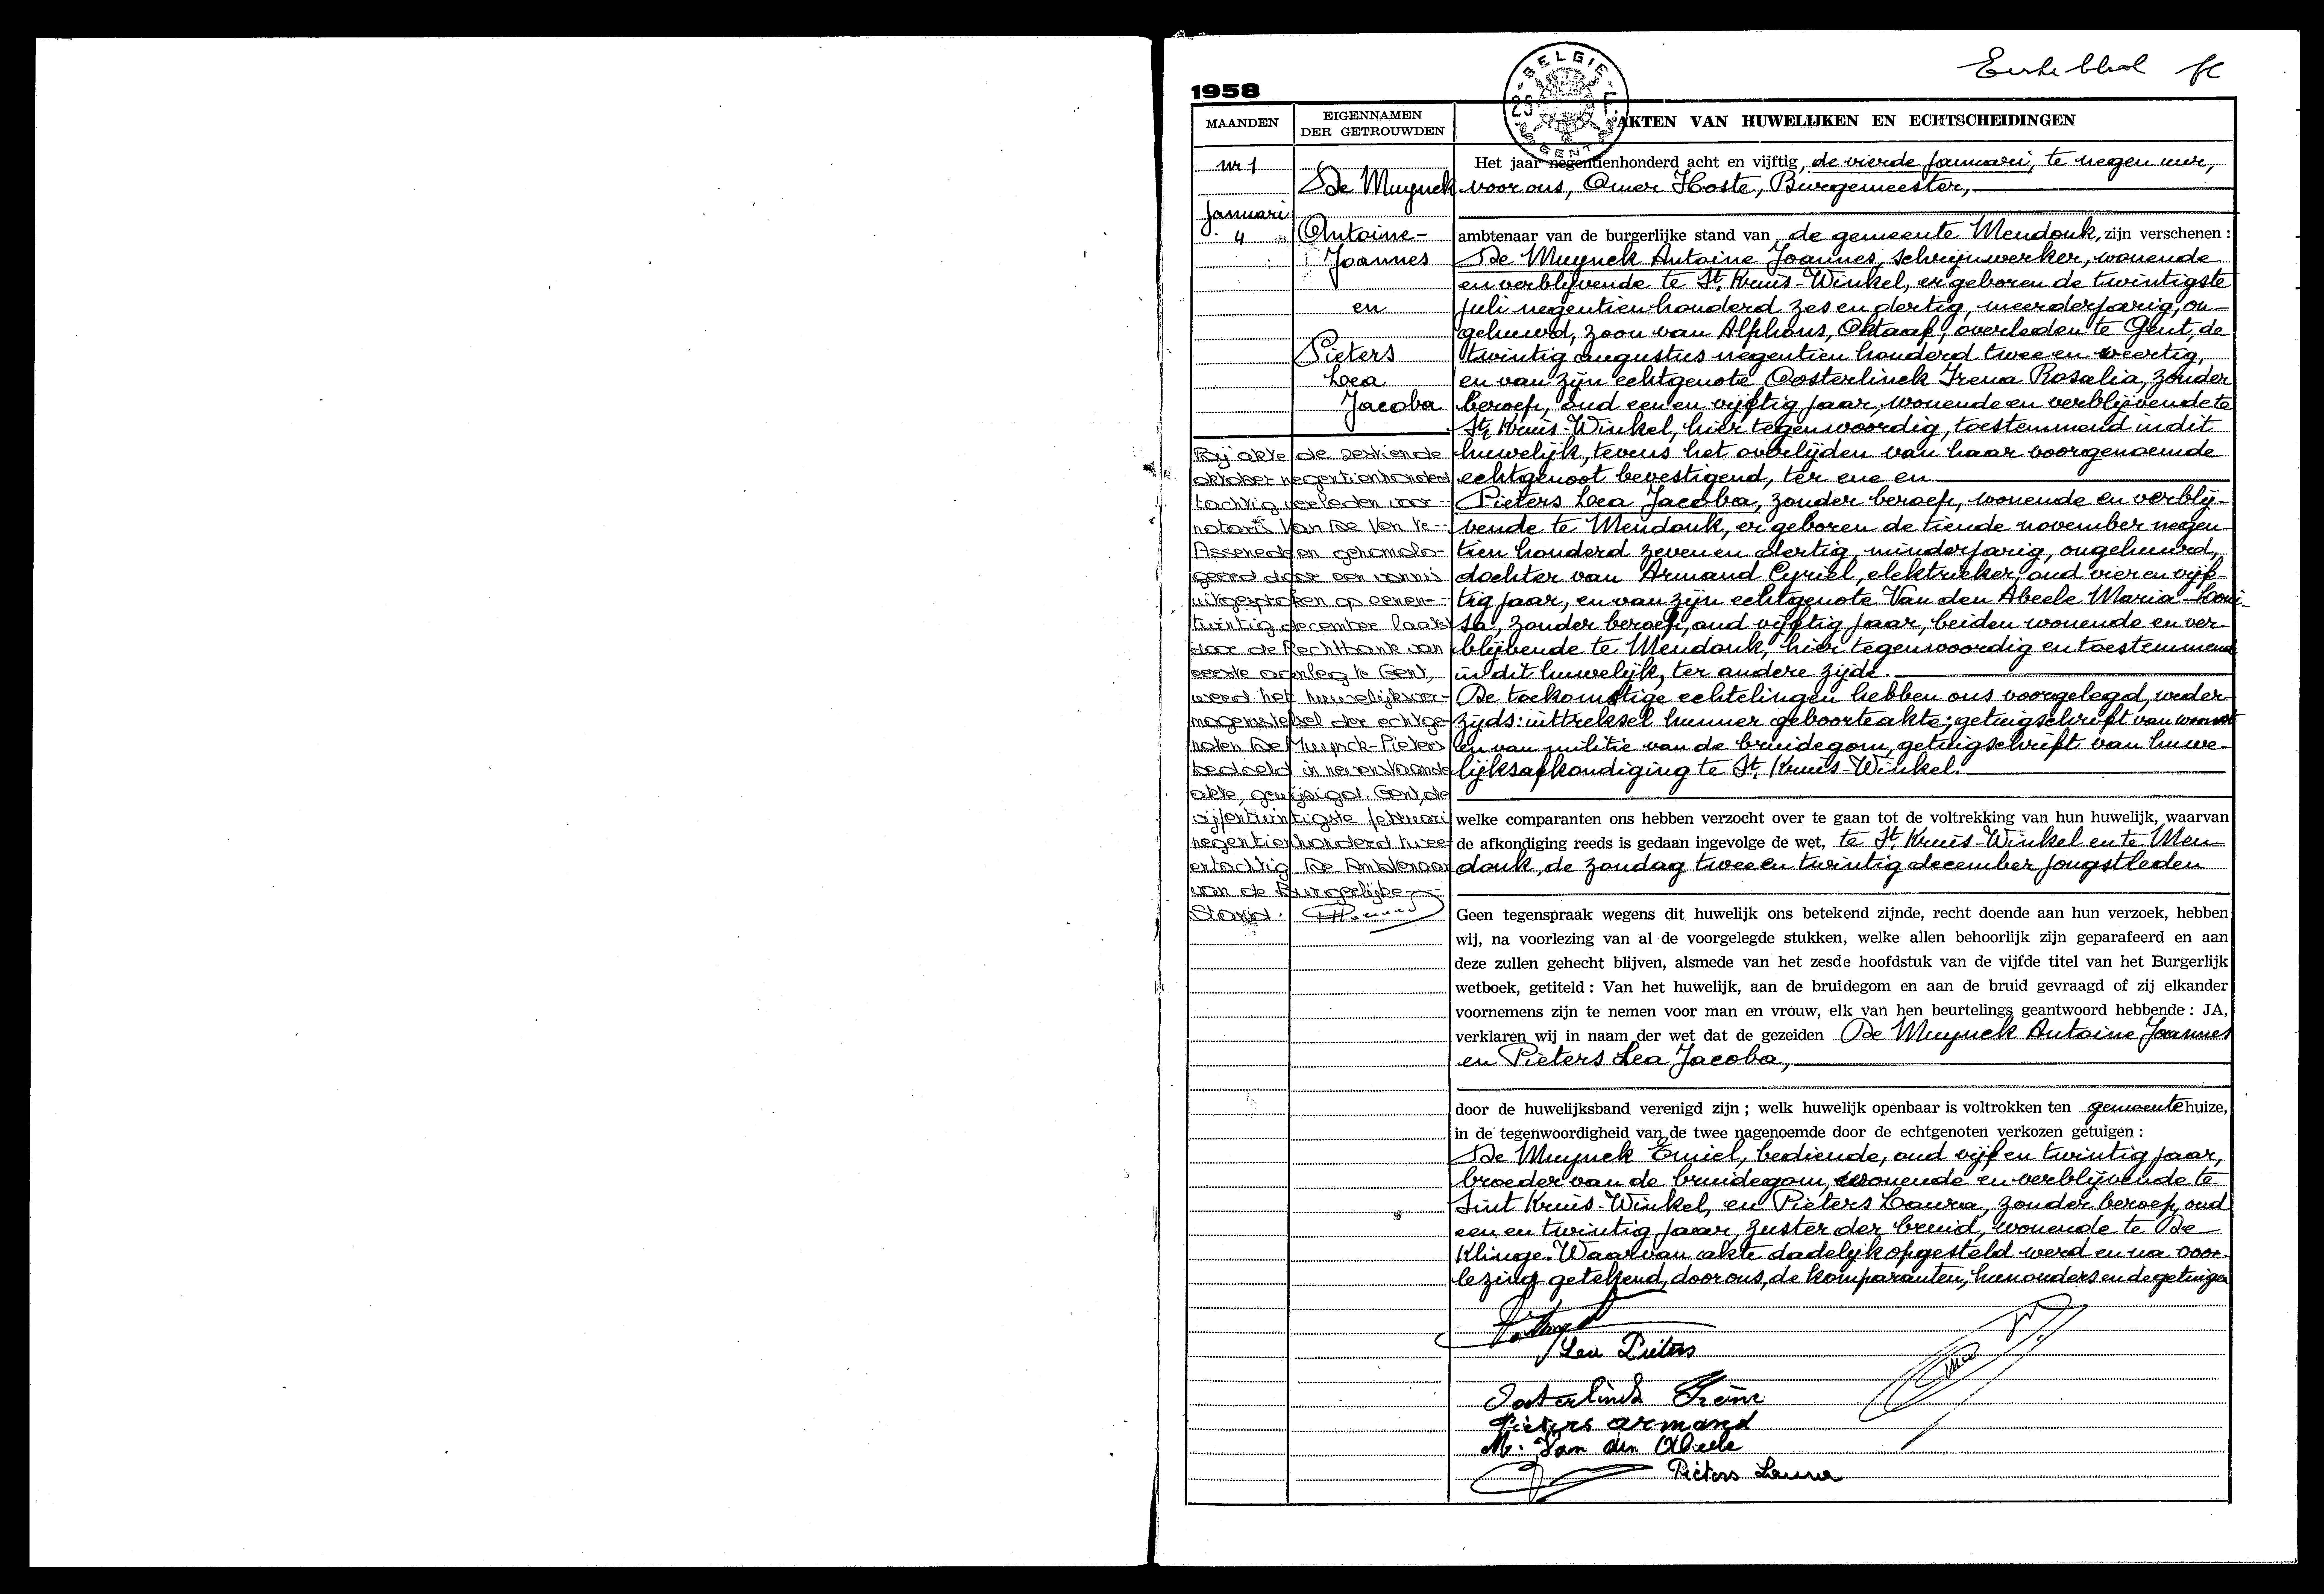 Eerste blad
1958
BELGIE
25 F.
GENT
MAANDEN
EIGENNAMEN
DER GETROUWDEN
AKTEN VAN HUWELIJKEN EN ECHTSCHEIDINGEN
nr 1
Januari
4
De Muynck
Antoine-
Joannes
en
Pieters
Lea
Jacoba
Bij akte de zestiende
oktober negentienhonderd
tachtig verleden voor
notaris Van De Ven te
Assenede en gehomolo-
geerd door een vonnis
uitgesproken op eenen-
twintig december laatst
door de Rechtbank van
eerste aanleg te Gent,
werd het huwelijksver-
mogenstelsel der echtge-
noten De Muynck-Pieters
bedoeld in nevenstaande
akte, gewijzigd. Gent, de
vijfentwintigste februari
negentienhonderd twee
entachtig. De Ambtenaar
van de Burgerlijke
Stand.
Het jaar negentienhonderd acht en vijftig, de vierde Januari, te negen uur,
voor ons, Omer Hoste, Burgemeester,
ambtenaar van de burgerlijke stand van de gemeente Mendonk, zijn verschenen :
De Muynck Antoine Joannes, schrijnwerker, wonende
en verblijvende te St. Kruis-Winkel, er geboren de twintigste
Juli negentien honderd zes en dertig, meerderjarig, on-
gehuwd, zoon van Alphons, Oktaaf, overleden te Gent, de
twintig augustus negentien honderd twee en veertig,
en van zijn echtgenote Oosterlinck Irena Rosalia, zonder
beroep, oud een en vijftig jaar, wonende en verblijvende te
St. Kruis-Winkel, hier tegenwoordig, toestemmend in dit
huwelijk, tevens het overlijden van haar voorgenoemde
echtgenoot bevestigend, ter ene en
Pieters Lea Jacoba, zonder beroep, wonende en verblij-
vende te Mendonk, er geboren de tiende november negen-
tien honderd zeven en dertig, minderjarig, ongehuwd,
dochter van Armand Cyriel, elektrieker, oud vier en vijf-
tig jaar, en van zijn echtgenote Van den Abeele Maria-Loui-
sa, zonder beroep, oud vijftig jaar, beiden wonende en ver-
blijvende te Mendonk, hier tegenwoordig en toestemmend
in dit huwelijk, ter andere zijde.
De toekomstige echtelingen hebben ons voorgelegd, weder-
zijds: uittreksel hunner geboorteakte; getuigschrift van woonst
en van militie van de bruidegom, getuigschrift van huwe-
lijksafkondiging te St. Kruis-Winkel.
welke comparanten ons hebben verzocht over te gaan tot de voltrekking van hun huwelijk, waarvan
de afkondiging reeds is gedaan ingevolge de wet, te St. Kruis-Winkel en te Men-
donk, de zondag twee en twintig december jongstleden
Geen tegenspraak wegens dit huwelijk ons betekend zijnde, recht doende aan hun verzoek, hebben
wij, na voorlezing van al de voorgelegde stukken, welke allen behoorlijk zijn geparafeerd en aan
deze zullen gehecht blijven, alsmede van het zesde hoofdstuk van de vijfde titel van het Burgerlijk
wetboek, getiteld : Van het huwelijk, aan de bruidegom en aan de bruid gevraagd of zij elkander
voornemens zijn te nemen voor man en vrouw, elk van hen beurtelings geantwoord hebbende : JA,
verklaren wij in naam der wet dat de gezeiden De Muynck Antoine Joannes
en Pieters Lea Jacoba,
door de huwelijksband verenigd zijn ; welk huwelijk openbaar is voltrokken ten gemeentehuize,
in de tegenwoordigheid van de twee nagenoemde door de echtgenoten verkozen getuigen :
De Muynck Emiel, bediende, oud vijf en twintig jaar,
broeder van de bruidegom, wonende en verblijvende te
Sint Kruis-Winkel, en Pieters Laura, zonder beroep, oud
een en twintig jaar, zuster der bruid, wonende te De
Klinge. Waarvan akte dadelijk opgesteld werd en na voor-
lezing getekend, door ons, de komparanten, hun ouders en de getuigen
Lea Pieters
Oosterlinck Irene
Pieters armand
M. Van den Abeele
Pieters Laura